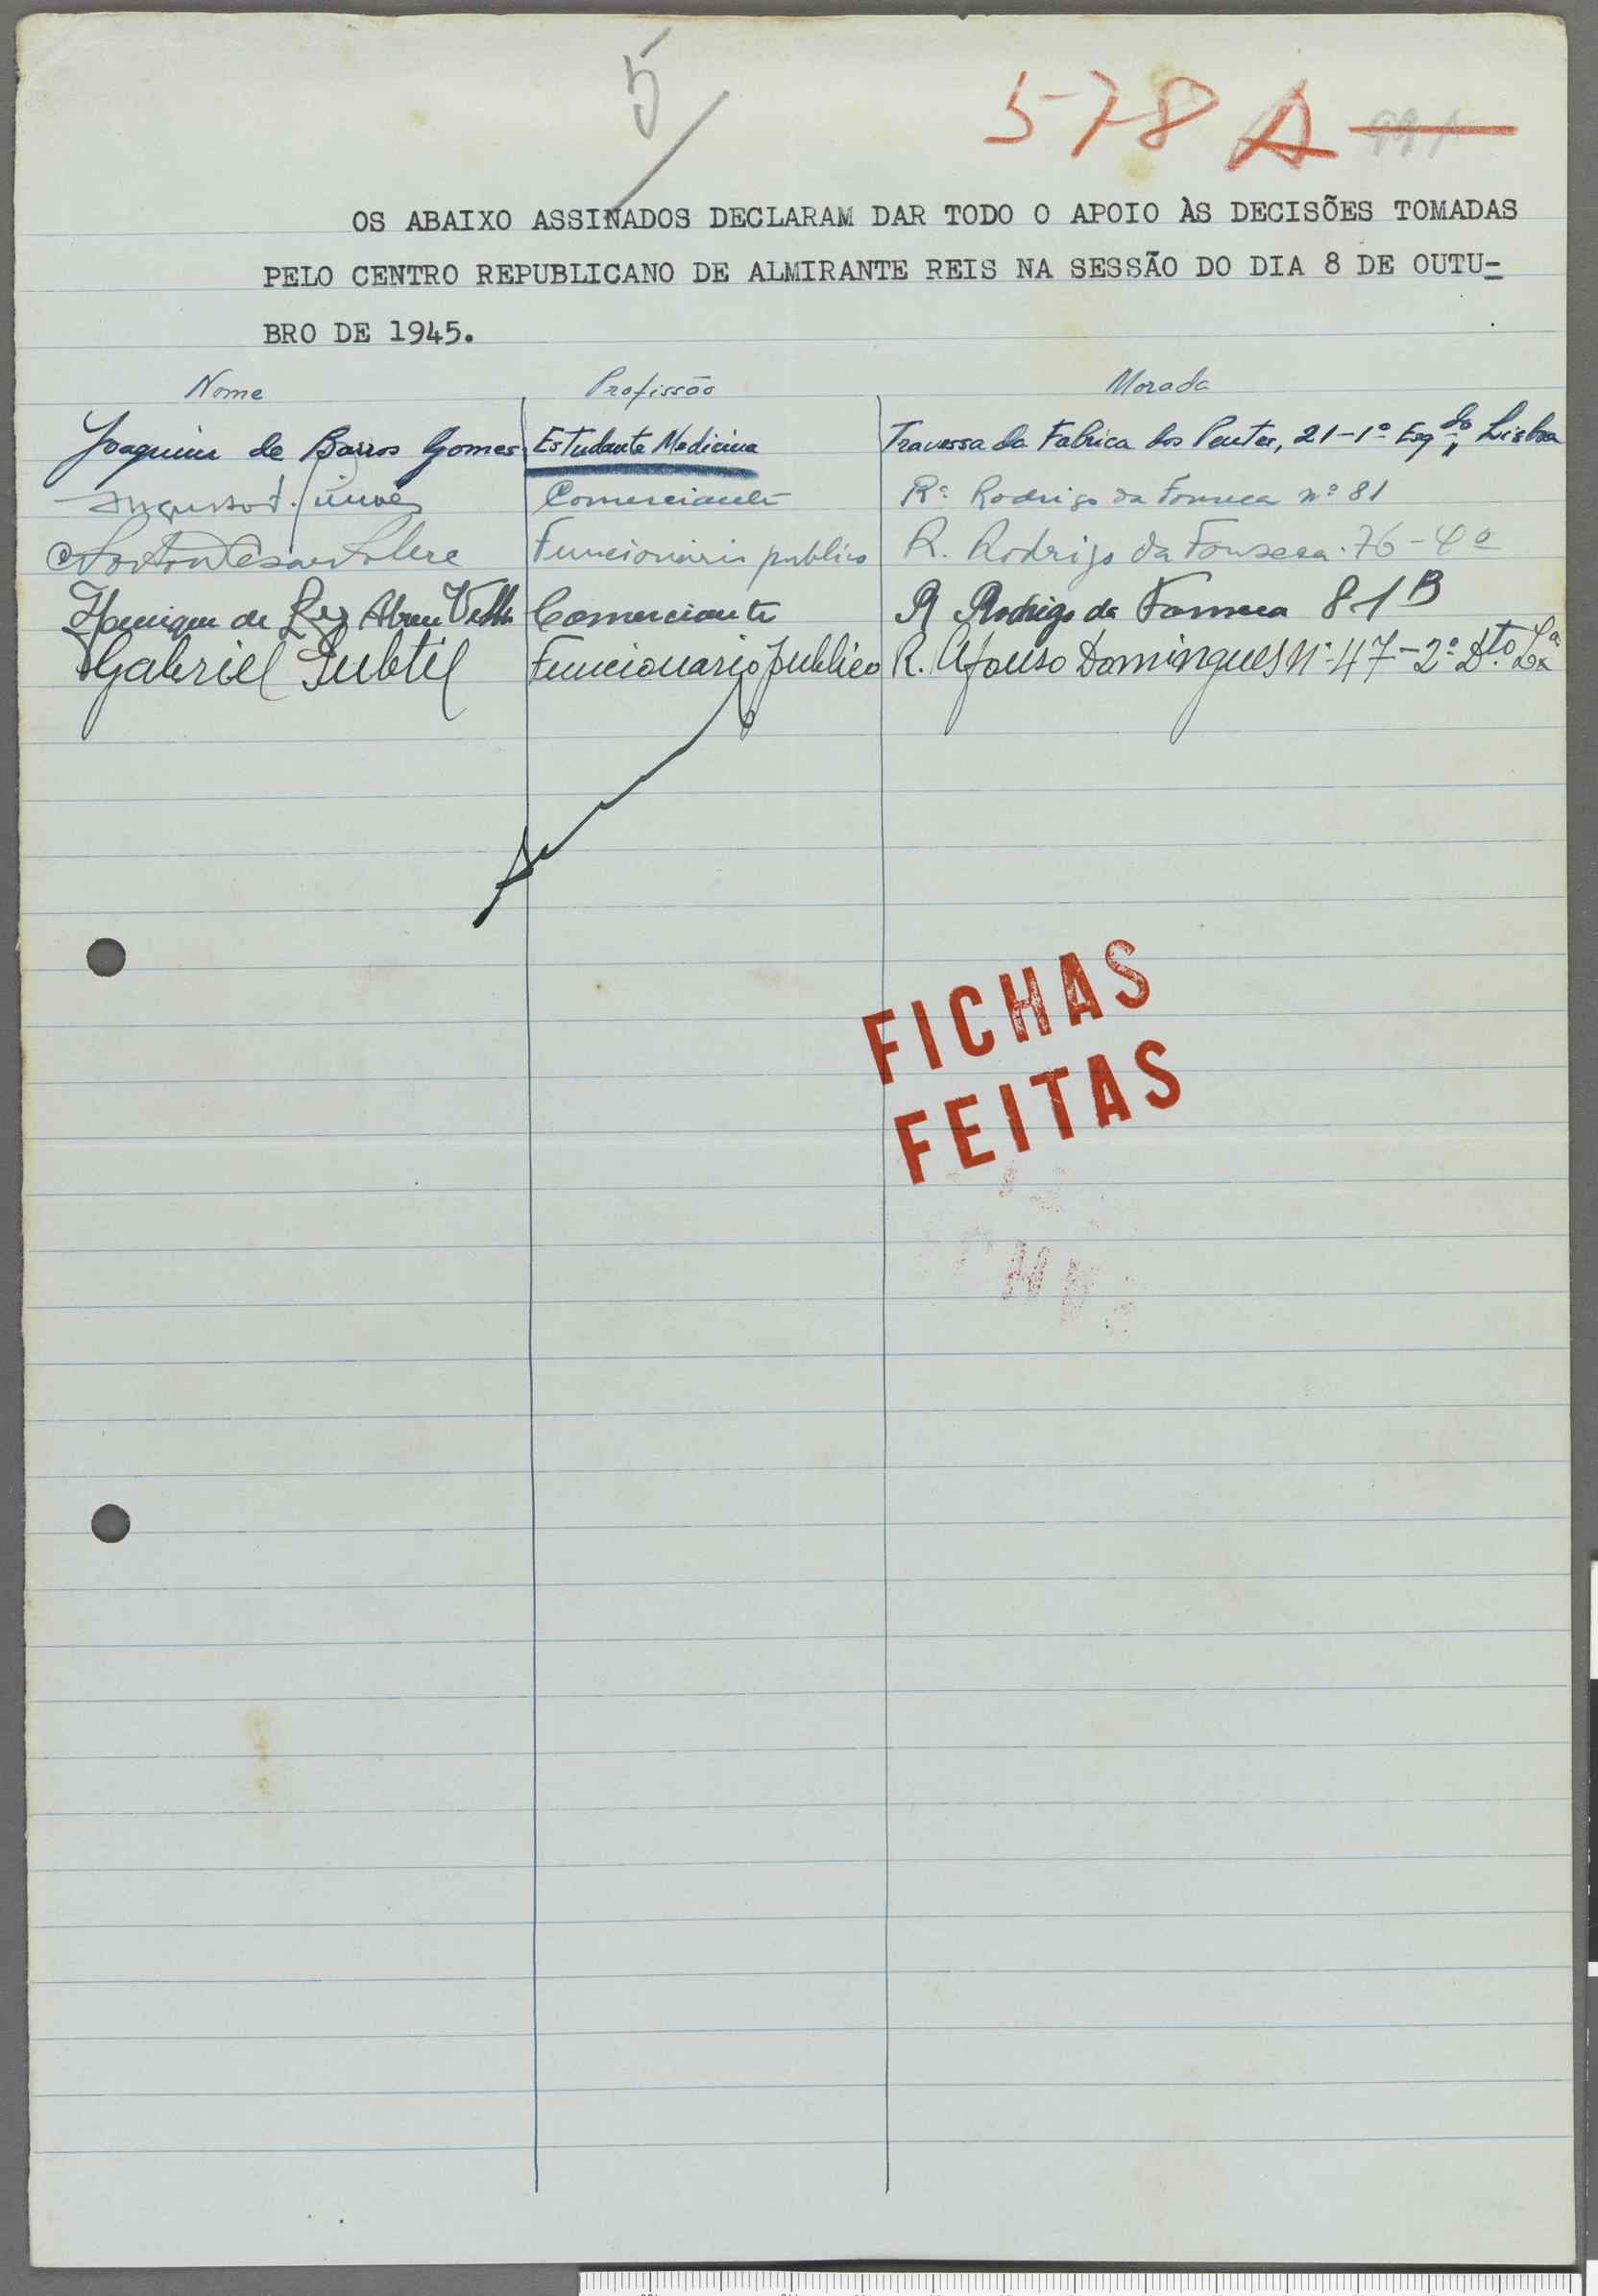 5
578 A
OS ABAIXO ASSINADOS DECLARAM DAR TODO O APOIO ÀS DECISÕES TOMADAS
PELO CENTRO REPUBLICANO DE ALMIRANTE REIS NA SESSÃO DO DIA 8 DE OUTU-
BRO DE 1945.
Nome Profissão Morada
Joaquim de Barros Gomes Estudante Medicina Travessa da Fabrica dos Pentes, 21-1º Esqdo, Lisboa
Comerciante Rª Rodrigo da Fonseca nº 81
Funcionario publico R. Rodrigo da Fonseca 76-4º
Henrique de Abreu Comerciante R Rodrigo da Fonseca 81B
Gabriel Subtil Funcionario publico R. Afonso Domingues Nº 47-2º Dto Lxª
FICHAS
FEITAS